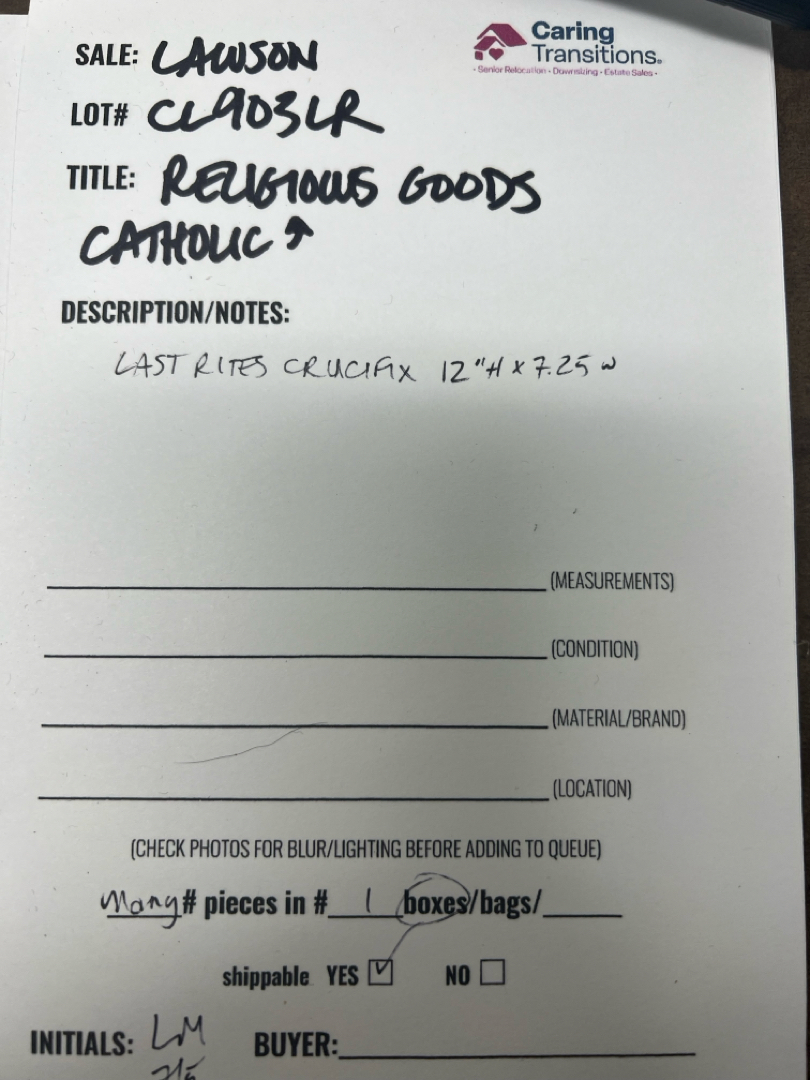 SALE: LAWSON
Caring Transitions®
• Senior Relocation • Downsizing • Estate Sales •
LOT# CL903LR
TITLE: RELIGIOUS GOODS
CATHOLIC
DESCRIPTION/NOTES:
LAST RITES CRUCIFIX 12"H x 7.25 W
(MEASUREMENTS)
(CONDITION)
(MATERIAL/BRAND)
(LOCATION)
(CHECK PHOTOS FOR BLUR/LIGHTING BEFORE ADDING TO QUEUE)
Many # pieces in # 1 boxes/bags/
shippable YES ☑ NO ☐
INITIALS: LM BUYER: